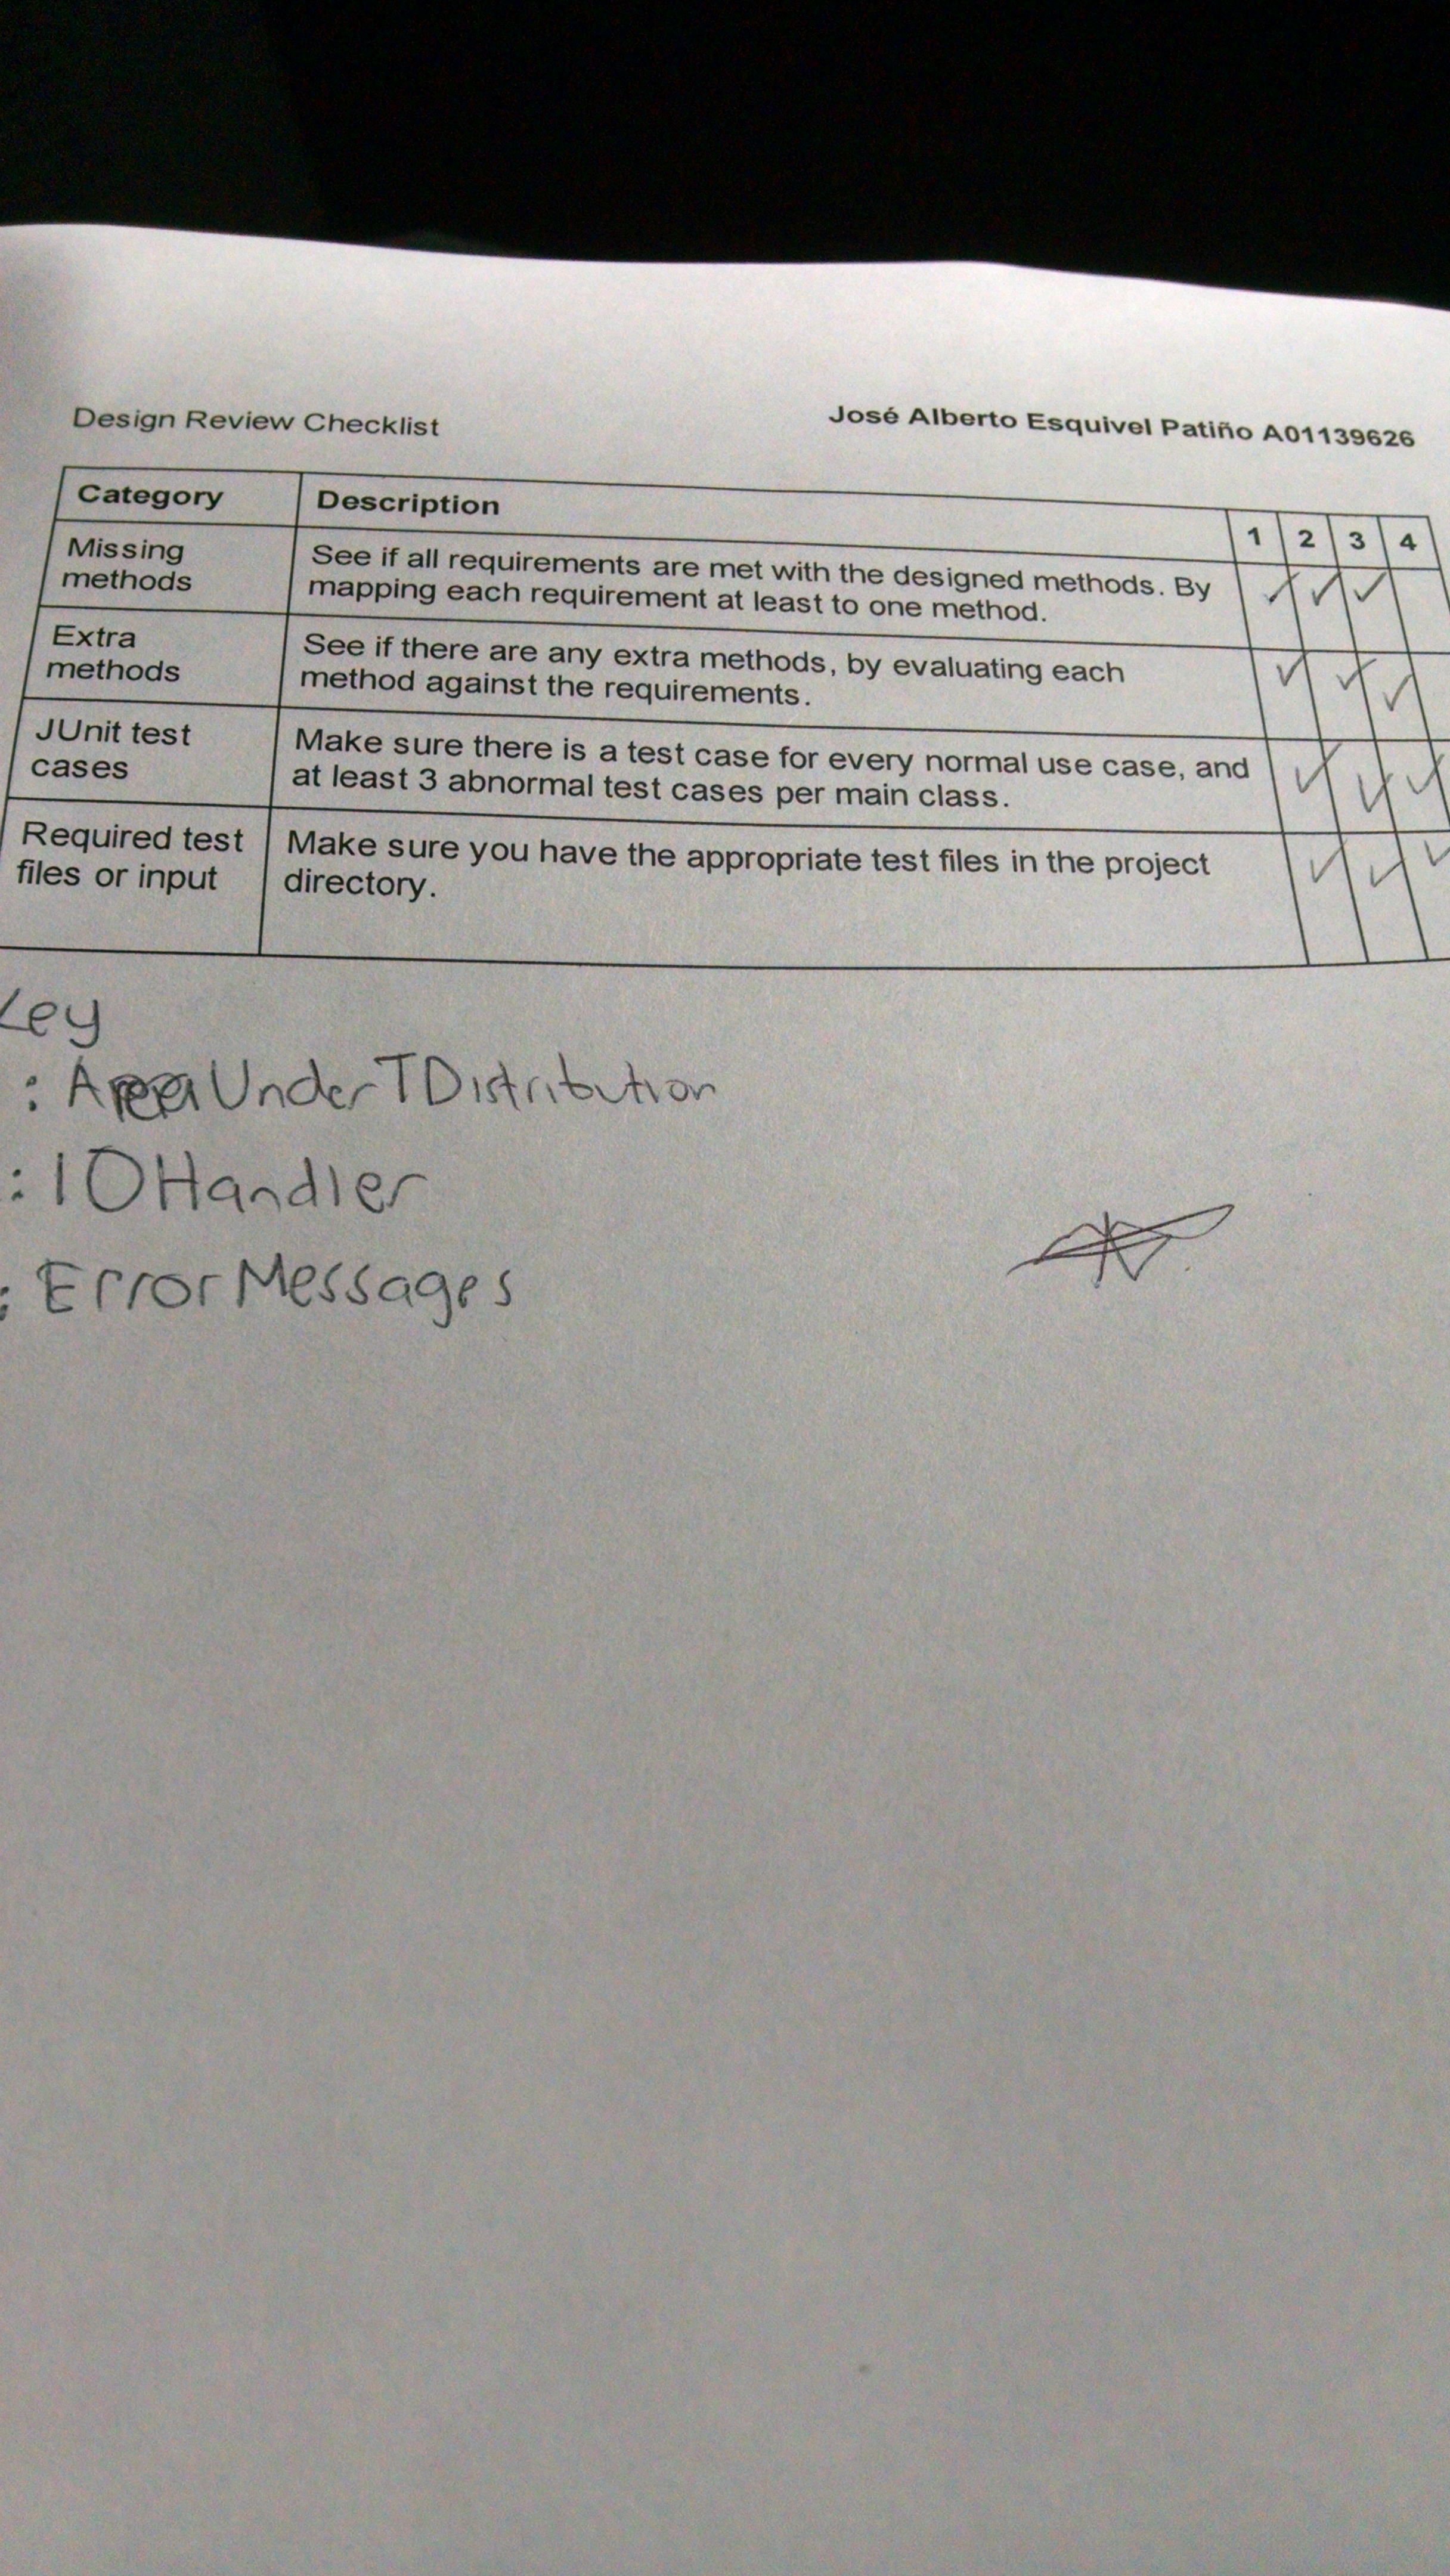 Design Review Checklist
José Alberto Esquivel Patiño A01139626
Category
Description
1 2 3 4
Missing
methods
See if all requirements are met with the designed methods. By
mapping each requirement at least to one method.
Extra
methods
See if there are any extra methods, by evaluating each
method against the requirements.
JUnit test
cases
Make sure there is a test case for every normal use case, and
at least 3 abnormal test cases per main class.
Required test
files or input
Make sure you have the appropriate test files in the project
directory.
Key
: AreaUnderTDistribution
: IOHandler
: ErrorMessages